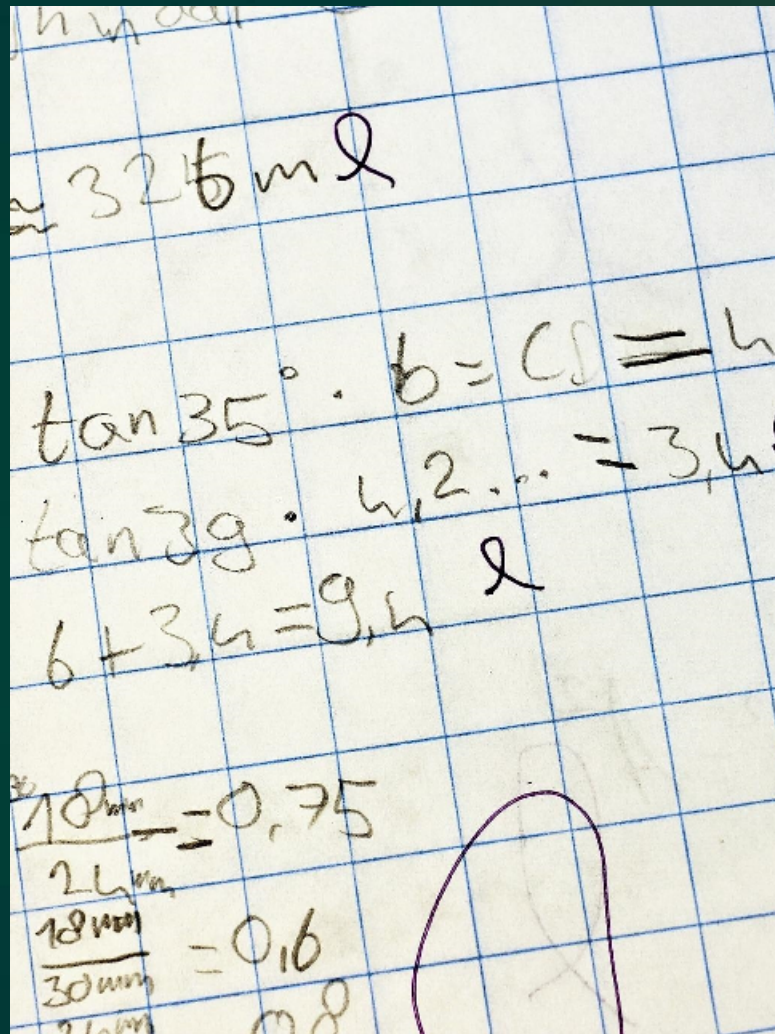 ≈ 326 ml
tan 35° · 6 = CD = 4
tan 39 · 4,2... = 3,4
6 + 3,4 = 9,4
18mm/24mm = 0,75
18mm/30mm = 0,6
24mm 0,8